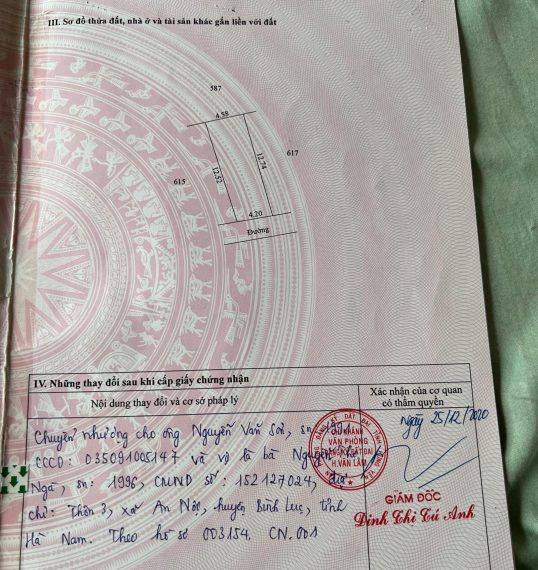 III. Sơ đồ thửa đất, nhà ở và tài sản khác gắn liền với đất
587
4.58
617
615
12.52
12.74
4.20
Đường
IV. Những thay đổi sau khi cấp giấy chứng nhận
Nội dung thay đổi và cơ sở pháp lý
Xác nhận của cơ quan
có thẩm quyền
Chuyển nhượng cho ông Nguyễn Văn Soi, sn 1991
CCCD: 035091005147 và vợ là bà Nguyễn Thị
Nga, sn: 1996, CMND số: 152127024, địa
chỉ: Thôn 3, xã An Nội, huyện Bình Lục, tỉnh
Hà Nam. Theo hồ sơ 003154. CN. 001
Ngày 25/12/2020
CHI NHÁNH
VĂN PHÒNG
ĐĂNG KÝ ĐẤT ĐAI
H.VĂN LÂM
GIÁM ĐỐC
Đinh Thị Tú Anh